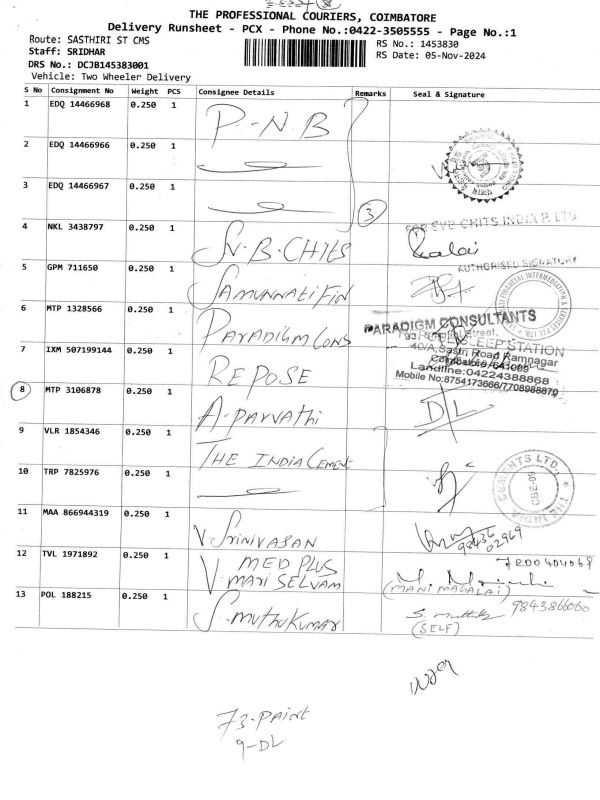 THE PROFESSIONAL COURIERS, COIMBATORE
Delivery Runsheet - PCX - Phone No.:0422-3505555 - Page No.:1
Route: SASTHIRI ST CMS
RS No.: 1453830
Staff: SRIDHAR
RS Date: 05-Nov-2024
DRS No.: DCJB145383001
Vehicle: Two Wheeler Delivery
S No Consignment No Weight PCS Consignee Details Remarks Seal & Signature
1 EDQ 14466968 0.250 1 P.N.B
2 EDQ 14466966 0.250 1
3 EDQ 14466967 0.250 1
3
4 NKL 3438797 0.250 1 Sv.B.CHITS
SVB CHITS INDIA P. LTD
Kalai
AUTHORISED SIGNATORY
5 GPM 711650 0.250 1 SAMUNNATI FIN
6 MTP 1328566 0.250 1 PARADIGM CONS
PARADIGM CONSULTANTS
7 IXM 507199144 0.250 1 REPOSE
SLEEP STATION
40/A, Sastri Road Ramnagar
Coimbatore/641009
Landline:04224388868
Mobile No:8754173666/7708988870
8 MTP 3106878 0.250 1 A.PARVATHI D/L
9 VLR 1854346 0.250 1 THE INDIA CEMENT
10 TRP 7825976 0.250 1
THE INDIA CEMENTS LTD. CBE-09
11 MAA 866944319 0.250 1 V.SRINIVASAN
98436
02969
12 TVL 1971892 0.250 1 MED PLUS
V.MARI SELVAM
7200404068
(MANI MAGALAI)
13 POL 188215 0.250 1 S.MUTHUKUMAR
9843866060
(SELF)
73-PAINT
9-DL